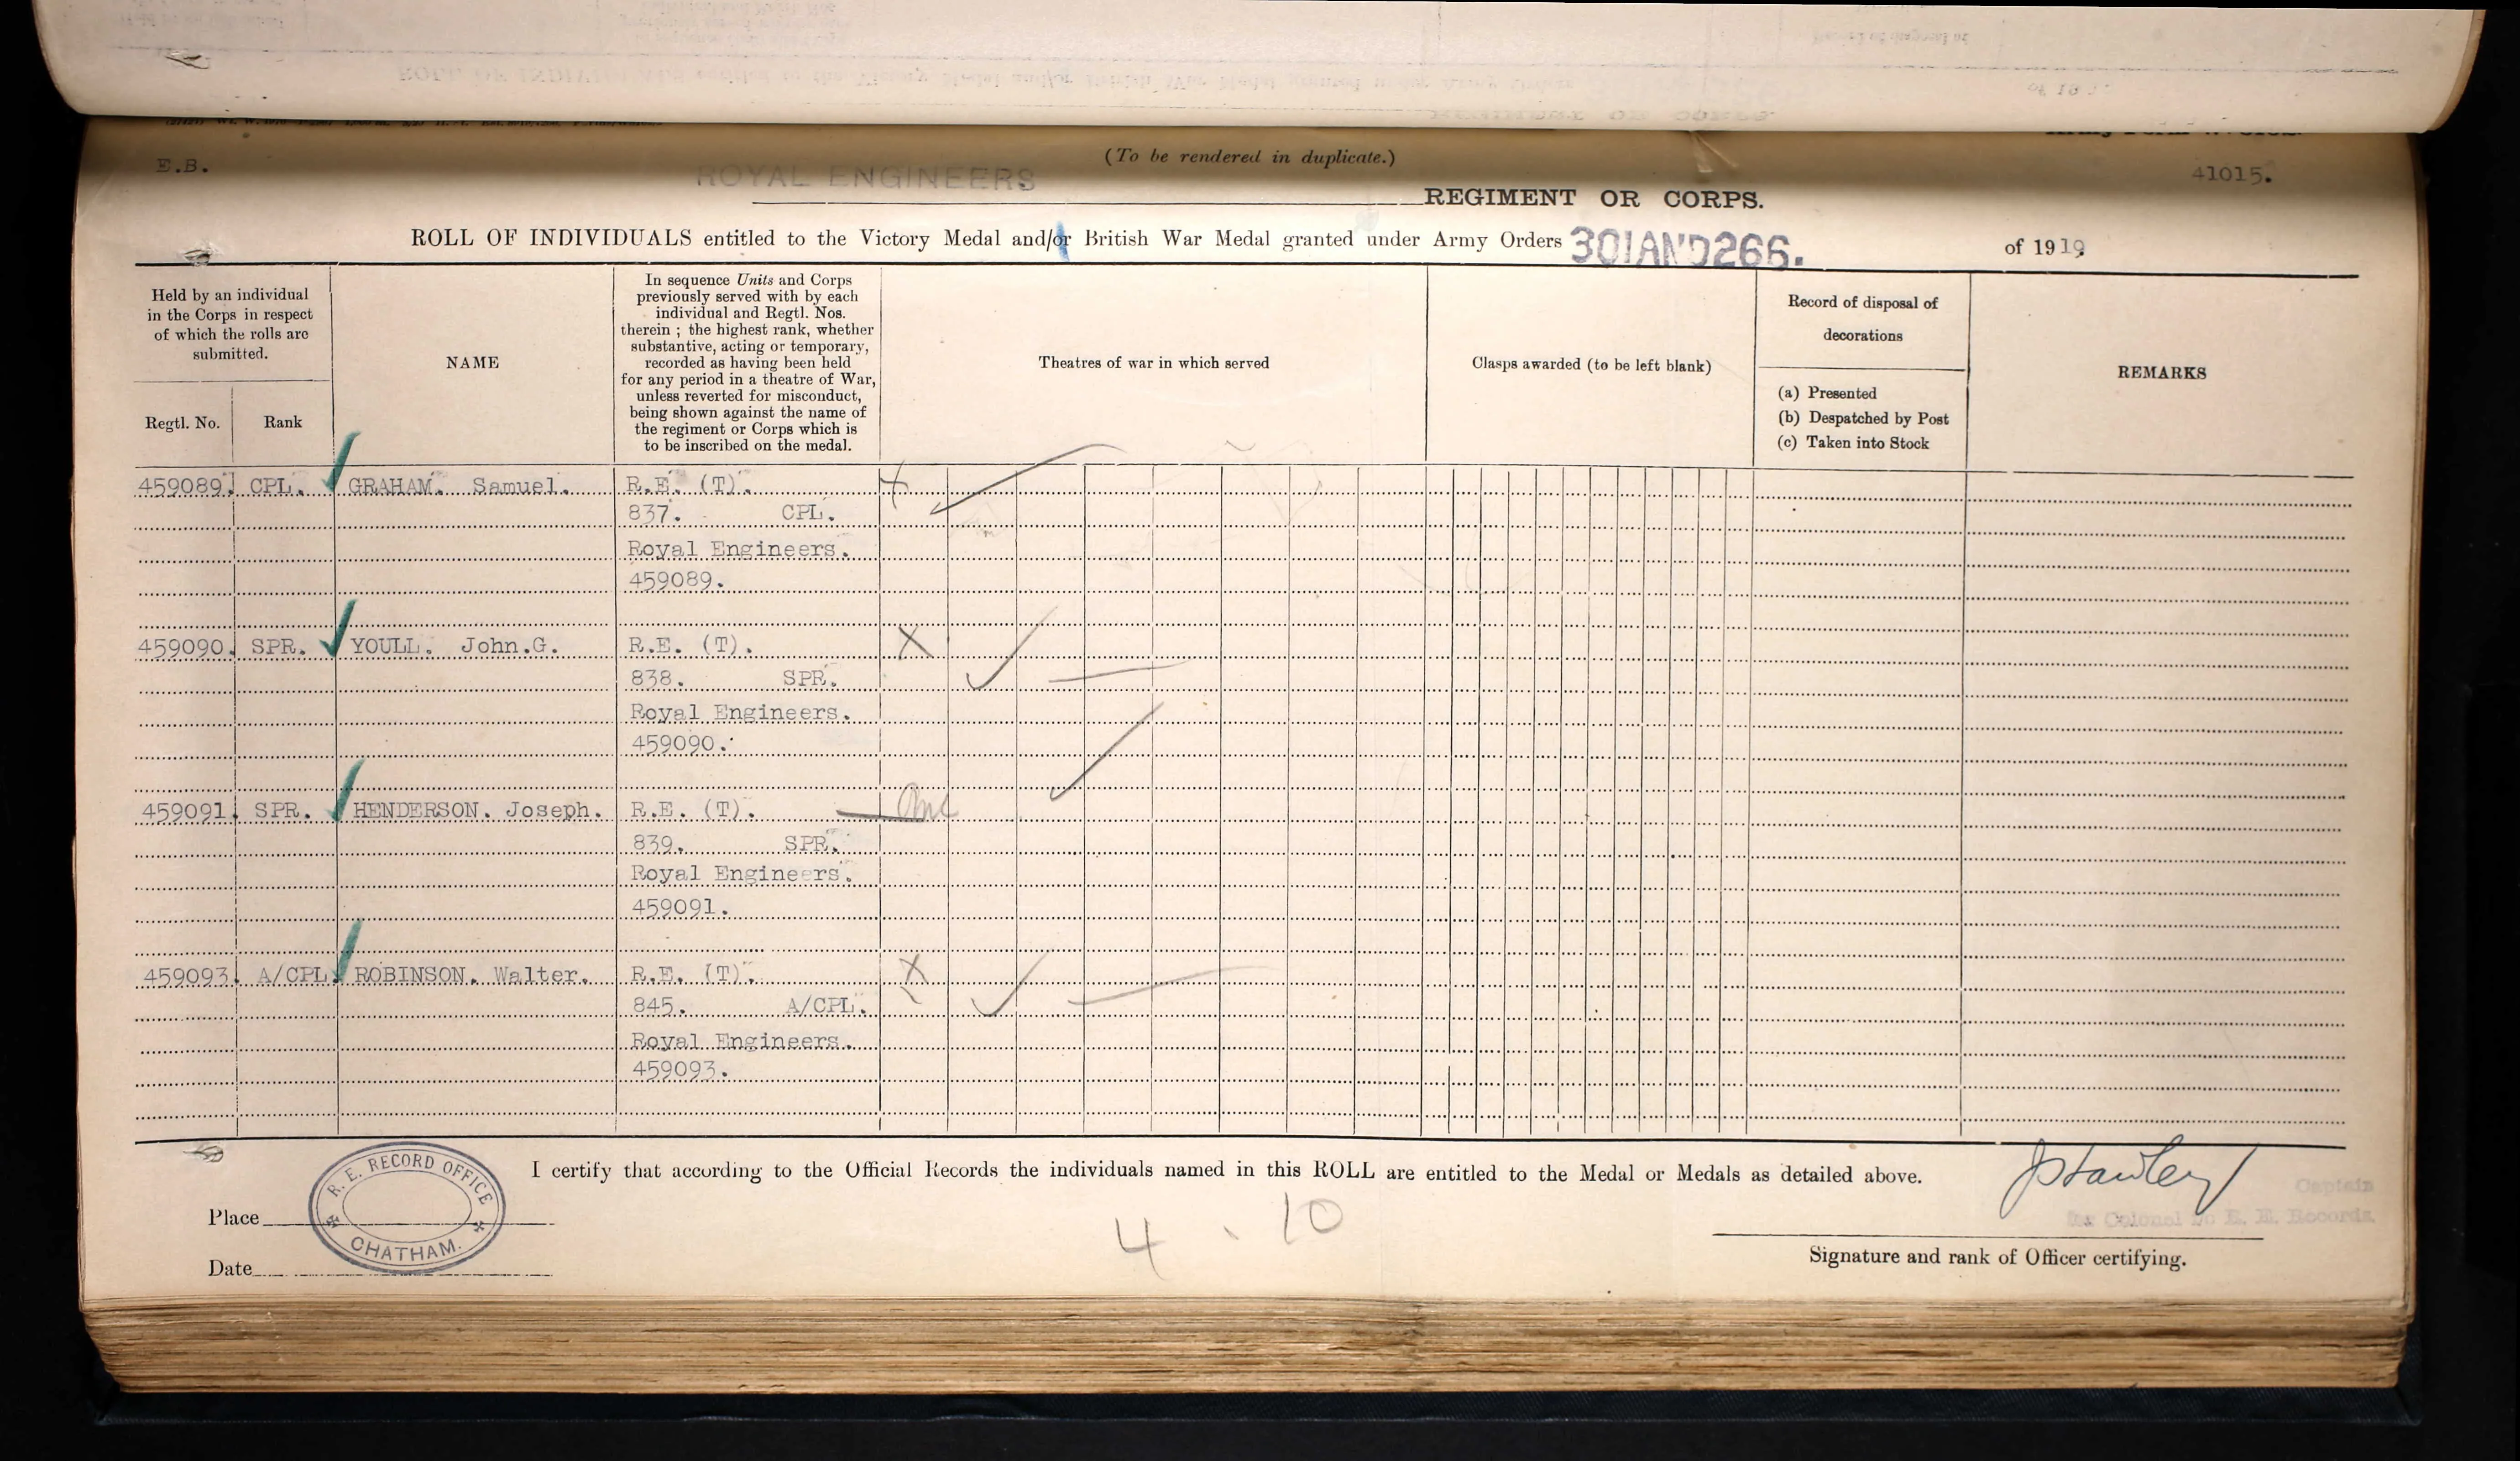 (To be rendered in duplicate.)
E.B.
41015.
ROYAL ENGINEERS
REGIMENT OR CORPS.
ROLL OF INDIVIDUALS entitled to the Victory Medal and/or British War Medal granted under Army Orders 301AND266. of 1919
Held by an individual
in the Corps in respect
of which the rolls are
submitted.
Regtl. No.
Rank
NAME
In sequence Units and Corps
previously served with by each
individual and Regtl. Nos.
therein ; the highest rank, whether
substantive, acting or temporary,
recorded as having been held
for any period in a theatre of War,
unless reverted for misconduct,
being shown against the name of
the regiment or Corps which is
to be inscribed on the medal.
Theatres of war in which served
Clasps awarded (to be left blank)
Record of disposal of
decorations
(a) Presented
(b) Despatched by Post
(c) Taken into Stock
REMARKS
459089. CPL. GRAHAM. Samuel. R.E. (T). X
837. CPL.
Royal Engineers.
459089.
459090. SPR. YOULL. John.G. R.E. (T). X
838. SPR.
Royal Engineers.
459090.
459091. SPR. HENDERSON. Joseph. R.E. (T).
839. SPR.
Royal Engineers.
459091.
459093. A/CPL. ROBINSON. Walter. R.E. (T). X
845. A/CPL.
Royal Engineers.
459093.
I certify that according to the Official Records the individuals named in this ROLL are entitled to the Medal or Medals as detailed above.
R. E. RECORD OFFICE
CHATHAM.
Place
Date
4 . 10
Captain
for Colonel i/c R. E. Records.
Signature and rank of Officer certifying.